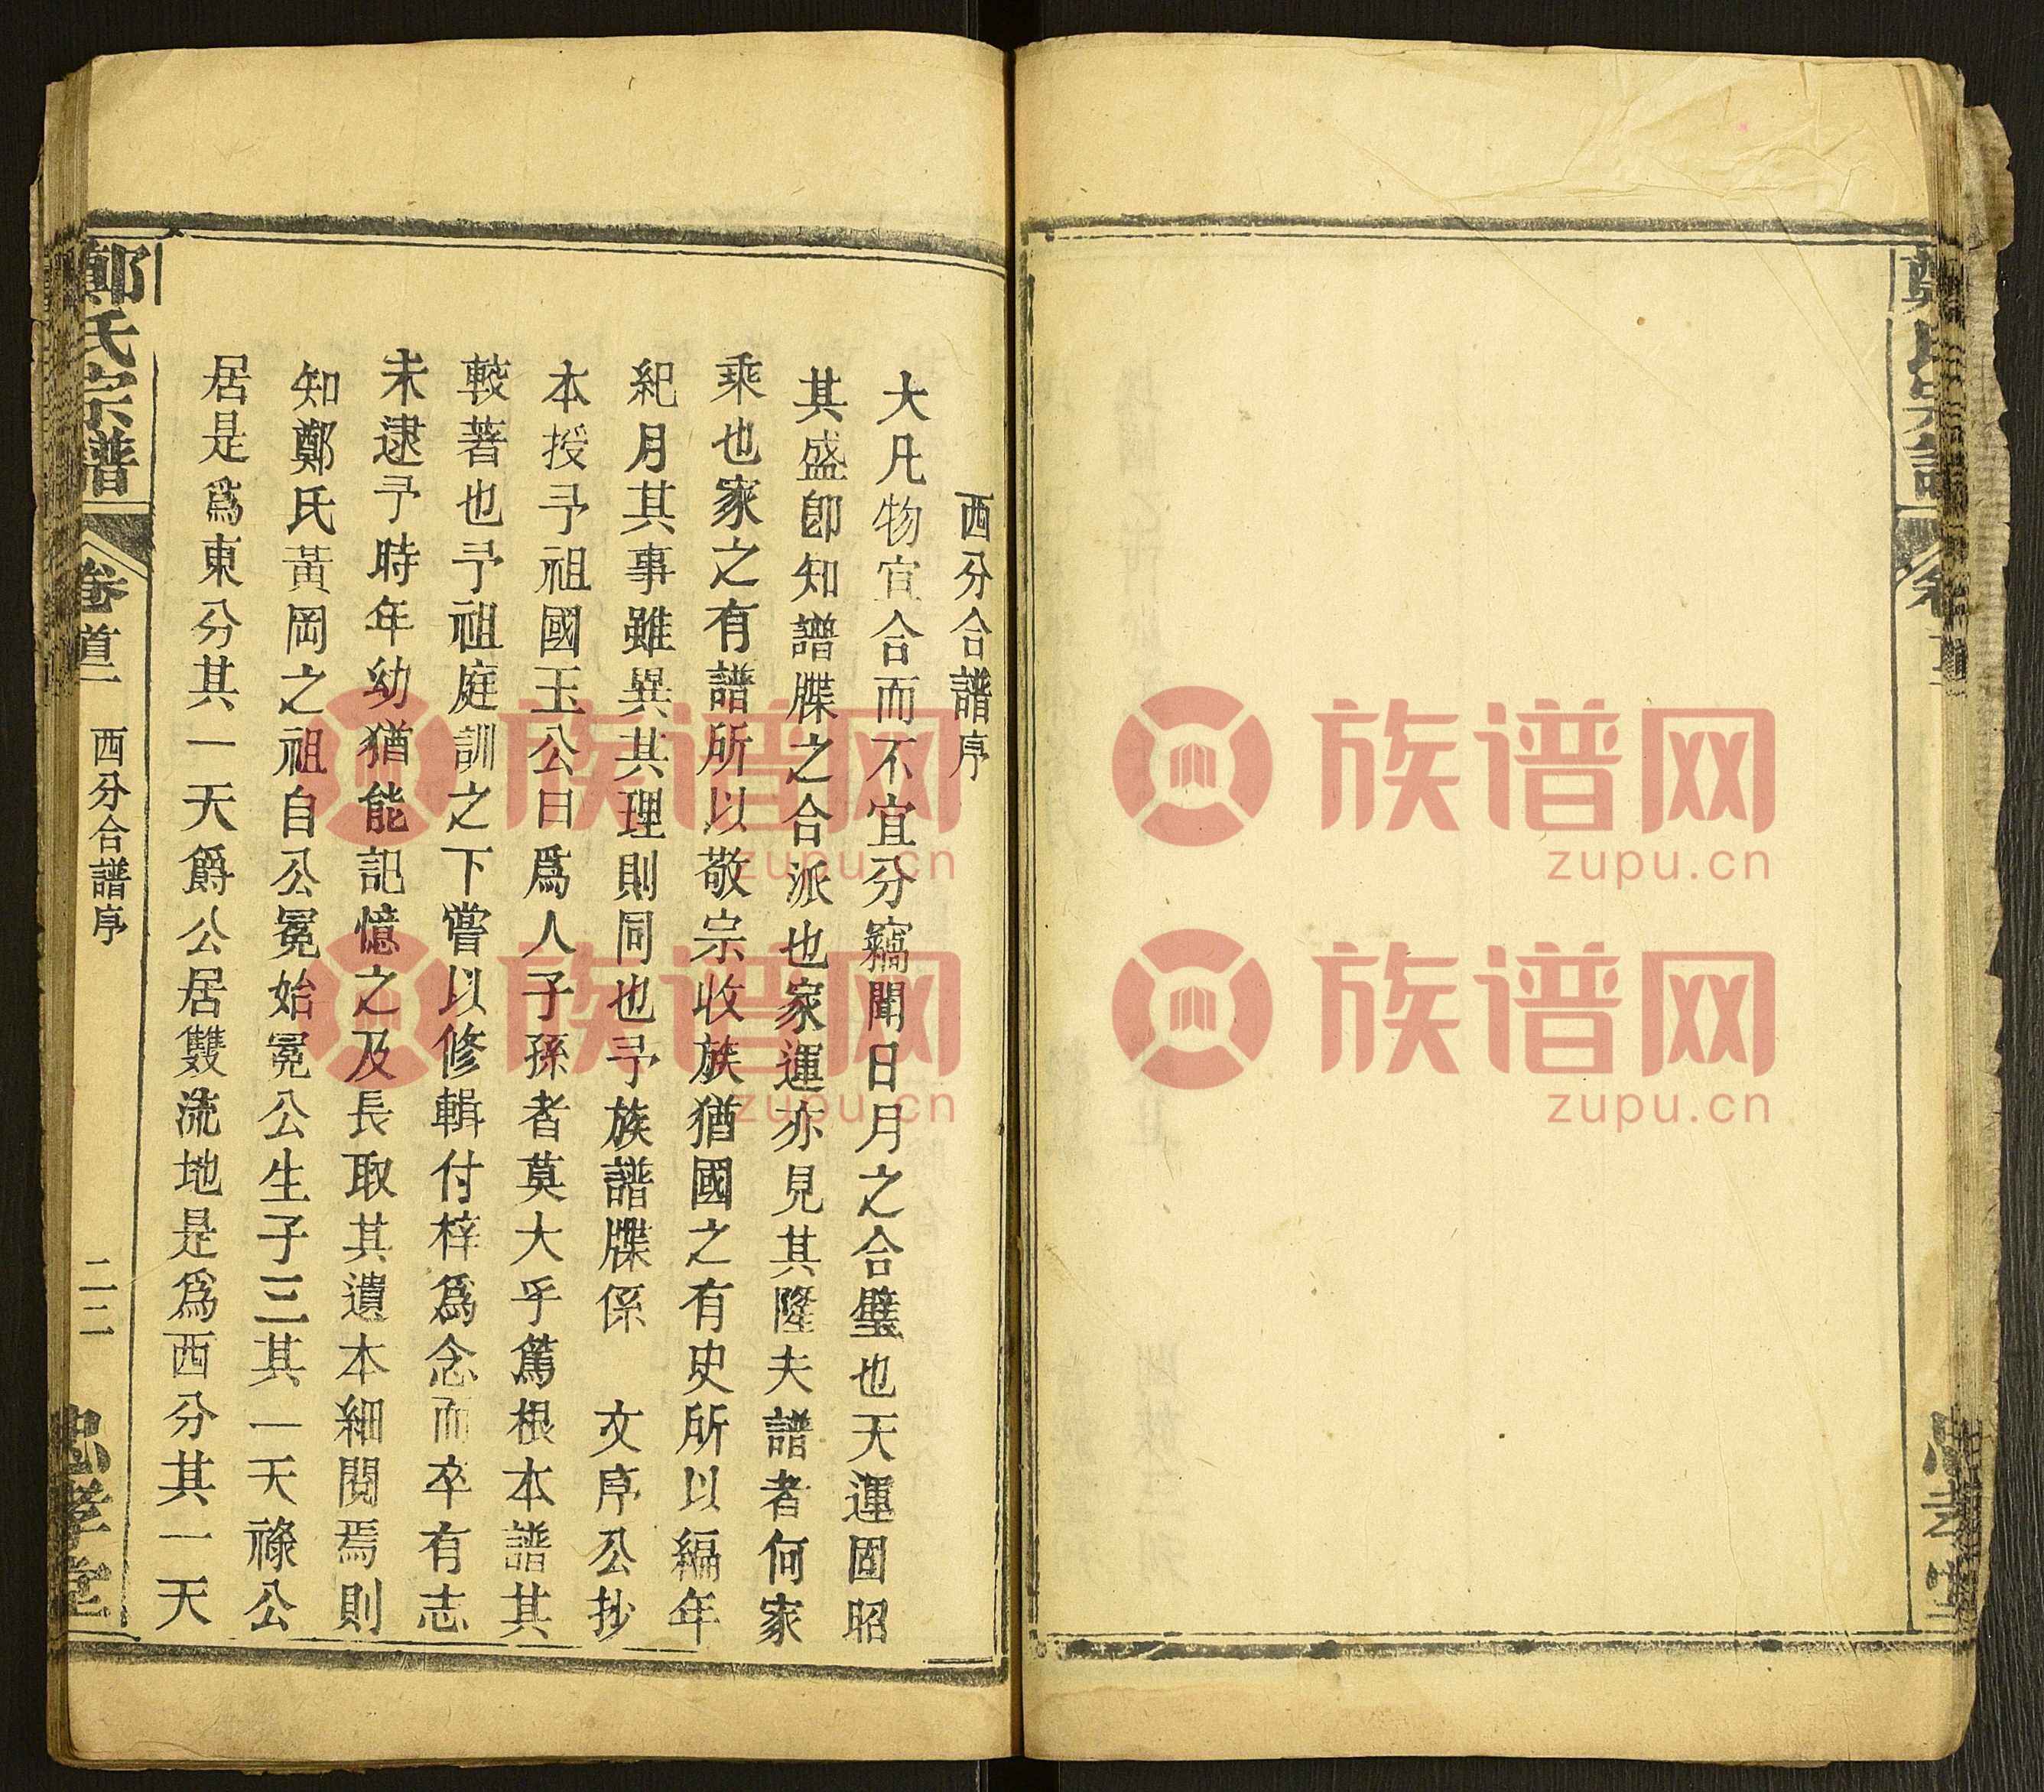 西分合譜序
大凡物宜合而不宜分竊聞日月之合璧也天運固昭
其盛卽知譜牒之合派也家運亦見其隆夫譜者何家
乘也家之有譜所以敬宗收族猶國之有史所以編年
紀月其事雖異其理則同也予族譜牒係　文序公抄
本授予祖國玉公曰爲人子孫者莫大乎篤根本譜其
較著也予祖庭訓之下嘗以修輯付梓爲念而卒有志
未逮予時年幼猶能記憶之及長取其遺本細閱焉則
知鄭氏黃岡之祖自公冕始冕公生子三其一天祿公
居是爲東分其一天爵公居雙流地是爲西分其一天
鄭氏宗譜　卷首一　西分合譜序　二二　忠孝堂
族谱网
zupu.cn
族谱网
zupu.cn
族谱网
zupu.cn
族谱网
zupu.cn